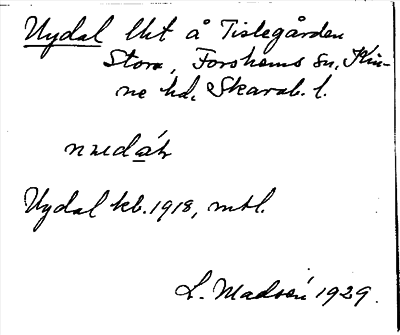 Nydal lht å Tistegården
Stora, Forshems sn, Kin-
ne hd, Skarab. l.
Nydal kb. 1918, mtl.
L. Madsén 1929.